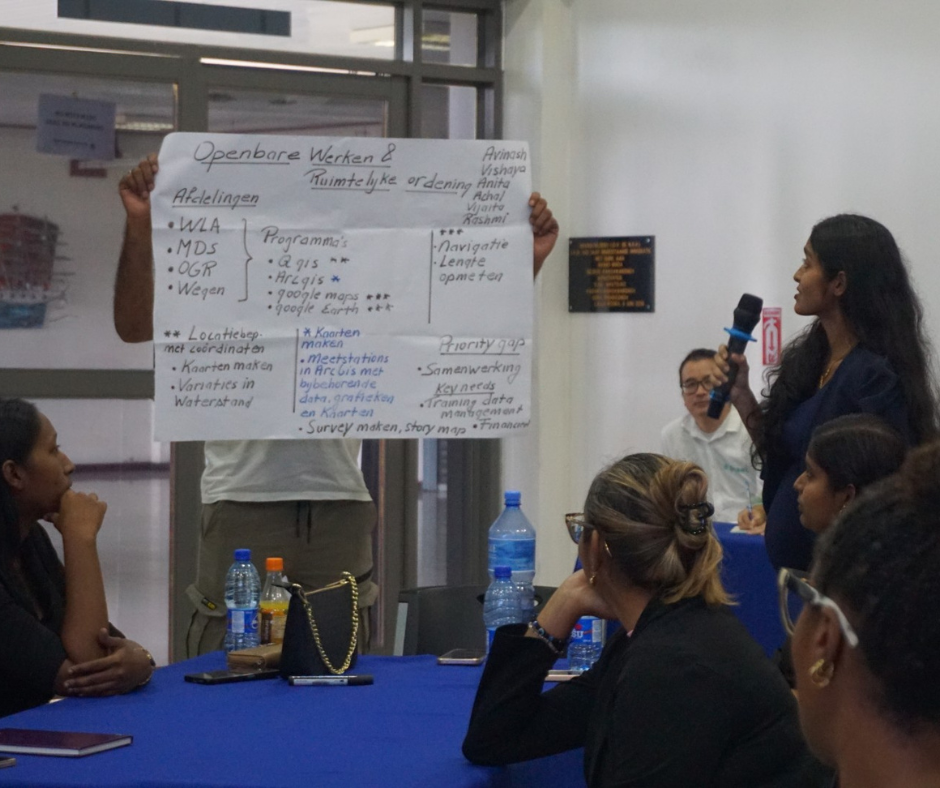 Openbare Werken &
Ruimtelijke ordening
Avinash
Vishaya
Anita
Achal
Vijaita
Rashmi
Afdelingen
• WLA
• MDS
• OGR
• Wegen
Programma's
• Qgis **
• Arcgis *
• google maps ***
• google Earth ***
***
• Navigatie
• Lengte
opmeten
** Locatiebep.
met coördinaten
• Kaarten maken
• Variaties in
Waterstand
* Kaarten
maken
• Meetstations
in ArcGis met
bijbehorende
data, grafieken
en Kaarten
• Survey maken, story map
Priority gap
• Samenwerking
Key needs
• Training data
management
• Financien